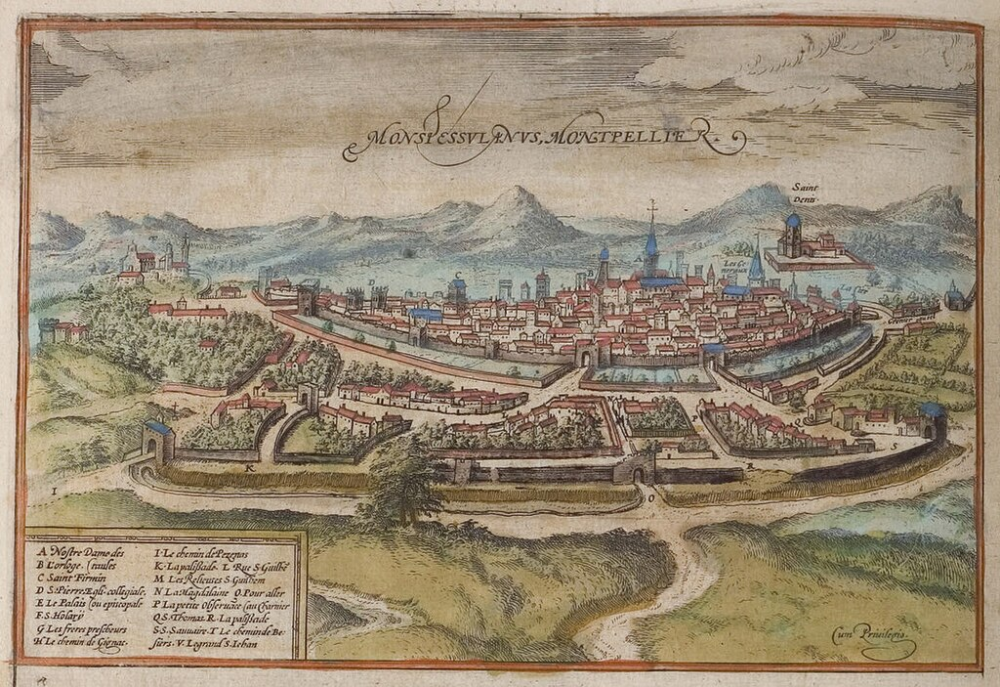 MONSPESSVLANVS, MONTPELLIER.
Saint
Denis
C
D
B
A
K
I
O
R
S
A Nostre Dame des
B L'orloge. (taules
C Saint Firmin
D S. Pierre. Egli. collegiale,
E Le Palais (ou episcopale
F. S. Holary
G Les freres prescheurs
H Le chemin de Gignac.
I. Le chemin de Pezenas
K. La palissade. L Rue S. Guilhē
M Les Relieuses S. Guilhem
N La Magdalaine O. Pour aller
P La petite Observãce (au Charnier
Q S. Thomas. R. La palissade
S. S. Sauuaire. T Le chemin de Be-
siers. V. Legrand S. Iehan
Cum Privilegio.